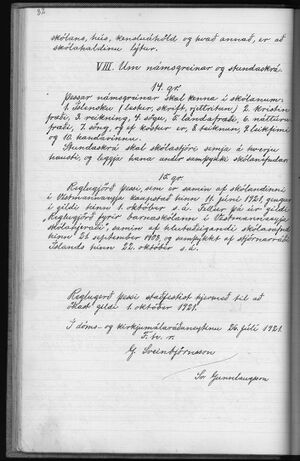 32
skólans, hús, kensluáhöld og hvað annað, er að
skólahaldinu lýtur.
VIII. Um námsgreinar og stundaskrá.
14. gr.
Þessar námsgreinar skal kenna í skólanum:
1. Íslensku (lestur, skrift, rjettritun) 2. kristin
fræði, 3. reikning, 4. sögu, 5. landafræði, 6. náttúru
fræði, 7. söng, og ef kostur er, 8. teiknun, 9. leikfimi
og 10. handavinnu.
Stundaskrá skal skólastjóri semja á hverju
hausti, og leggja hana undir samþykki skólanefndar.
15. gr.
Reglugjörð þessi, sem er samin af skólanefndinni
í Vestmannaeyja kaupstað hinn 11. júní 1921, gengur
í gildi hinn 1. október s.á. Fellur þá úr gildi
"Reglugjörð fyrir barnaskólann í Vestmannaeyja
skólahjeraði", samin af hlutaðeigandi skólanefnd
hinn 21. september 1909, og samþykkt af stjórnarráði
Íslands hinn 22. október s.á.
Reglugerð þessi staðfestist hjermeð til að
öðlast gildi 1. október 1921.
Í dóms- og kirkjumálaráðuneytinu 26. júlí 1921
F. h. r.
G. Sveinbjörnsson
Sv. Gunnlaugsson